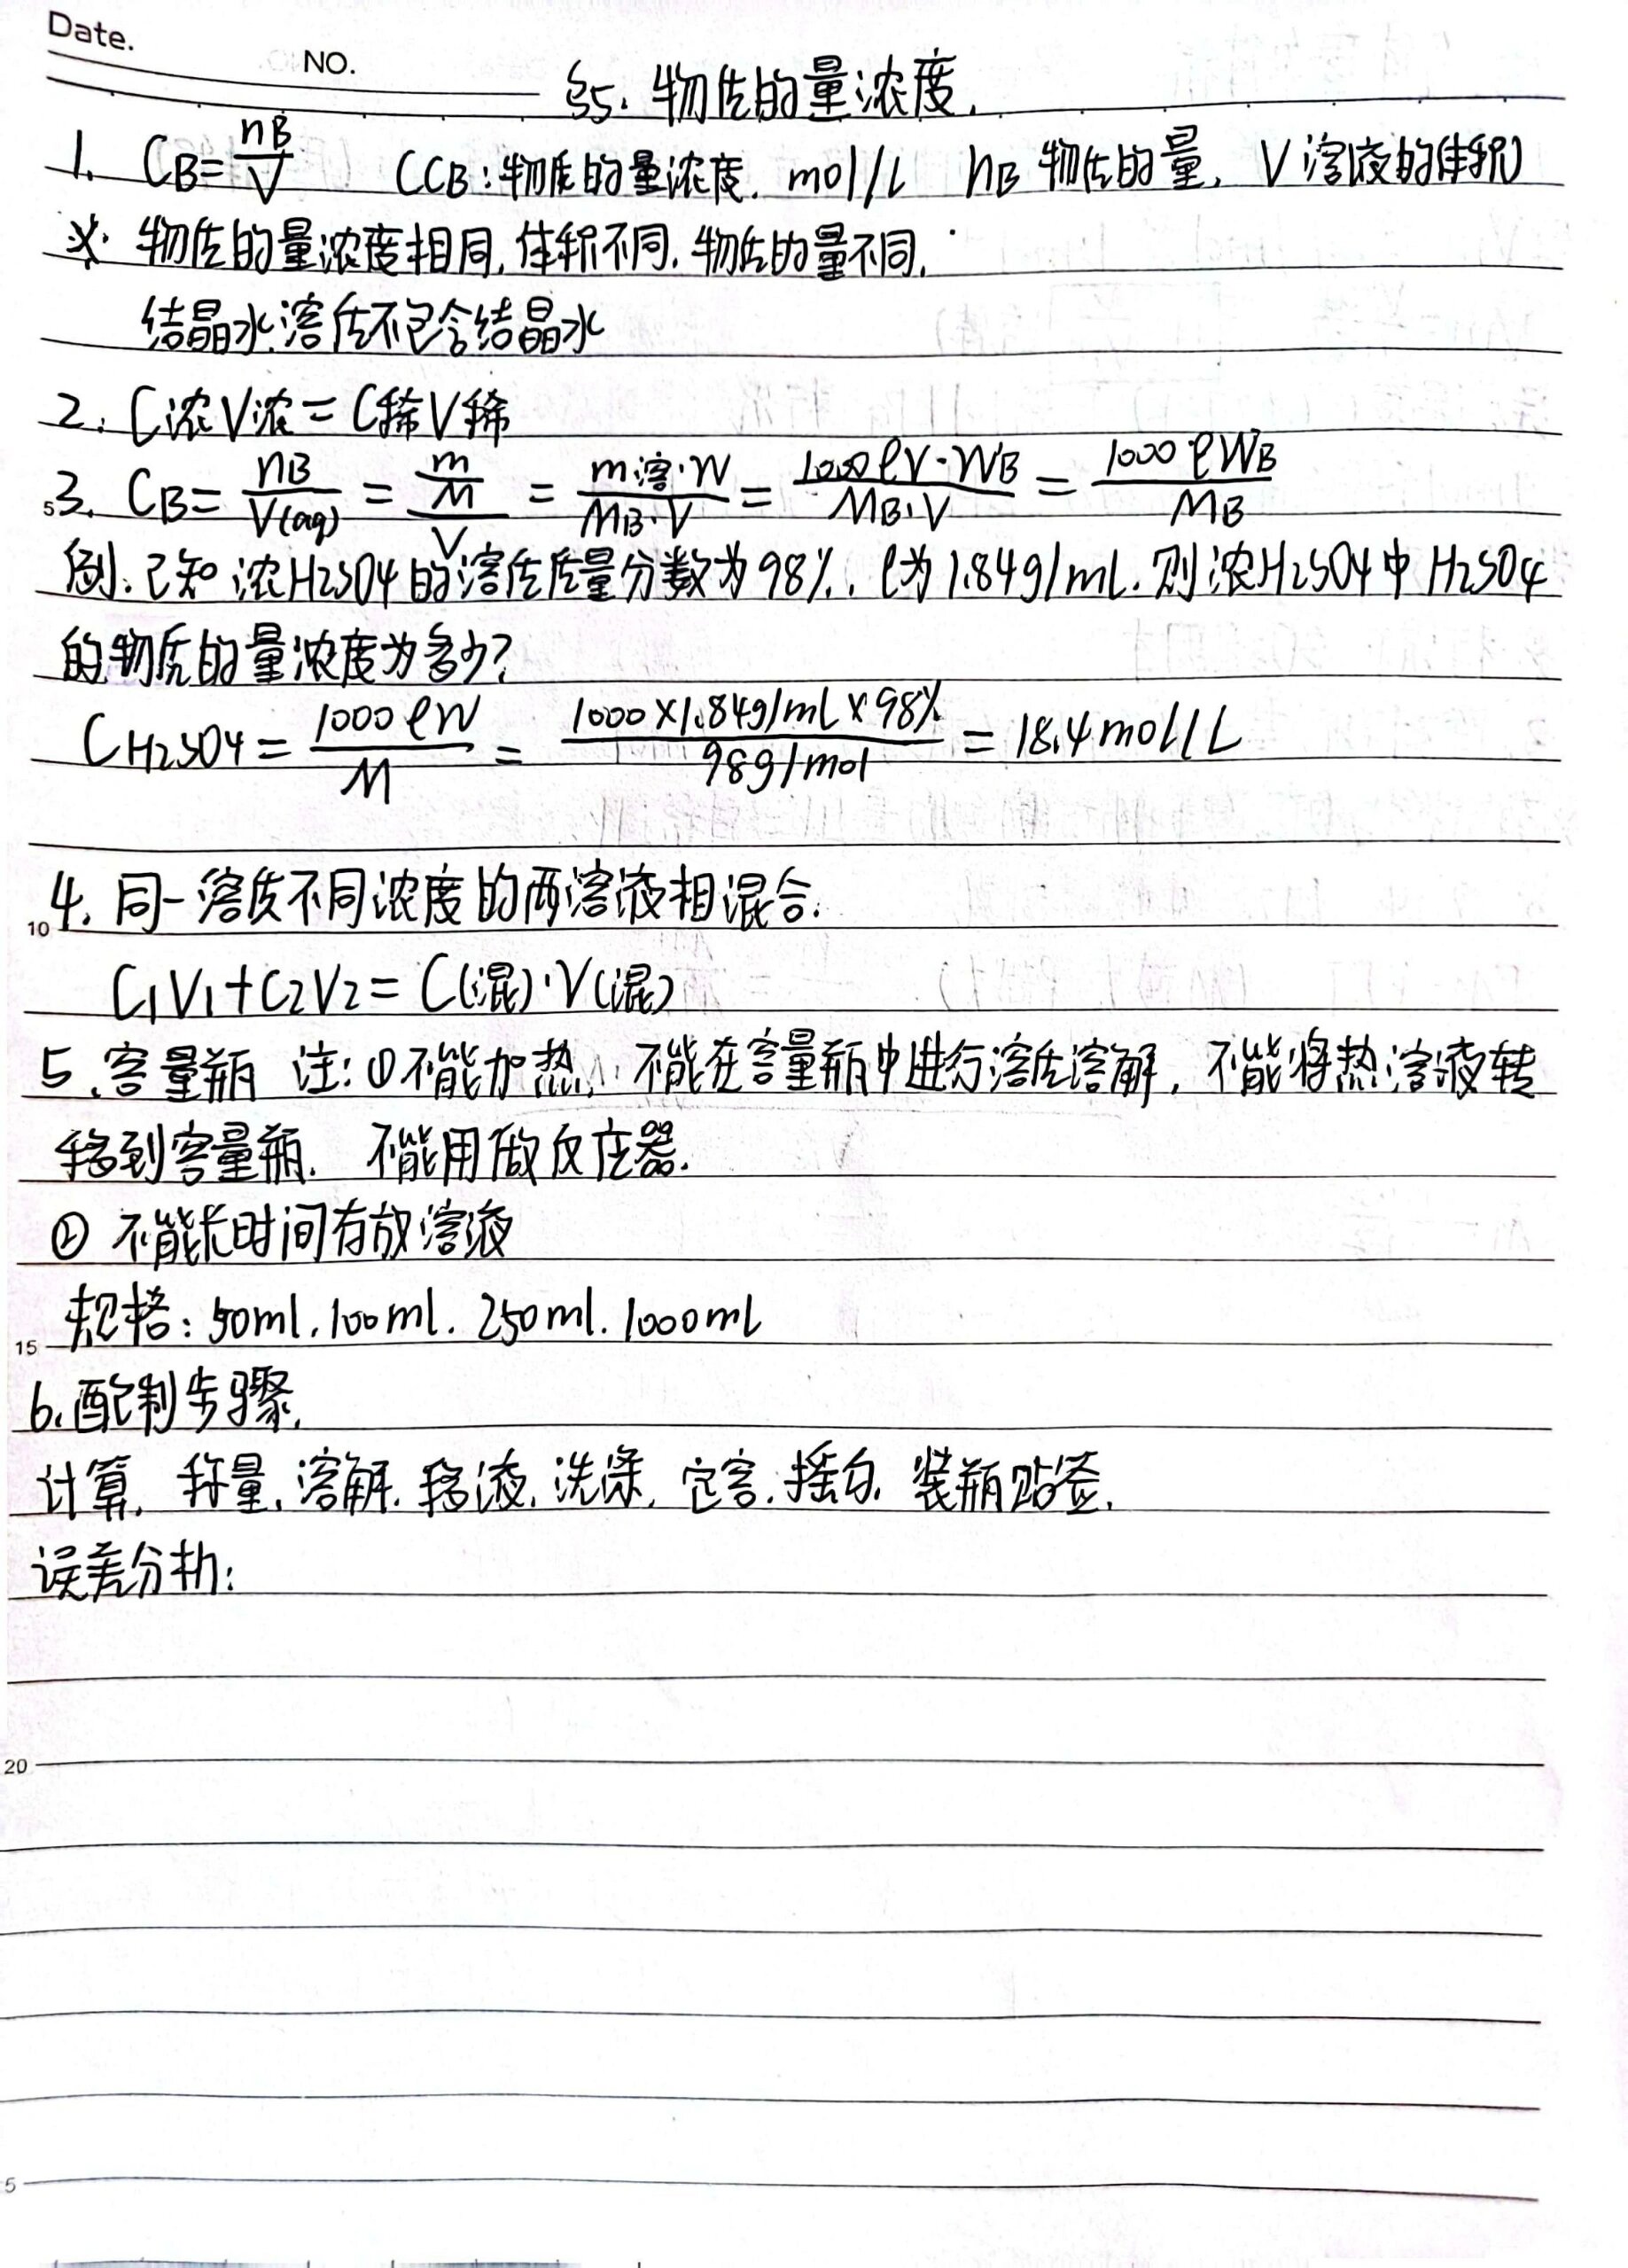 Date.
NO.
§5. 物质的量浓度.
1. CB=nB/V (CB:物质的量浓度. mol/L nB 物质的量, V 溶液的体积)
※ 物质的量浓度相同,体积不同,物质的量不同.
结晶水溶质不包含结晶水
2. C浓V浓=C稀V稀
5
3. CB=nB/V(aq)=(m/M)/V=m溶·W/MB·V=1000ρV·WB/MB·V=1000ρWB/MB
例:已知浓H2SO4的溶质质量分数为98%,ρ为1.84g/mL.则浓H2SO4中H2SO4
的物质的量浓度为多少?
CH2SO4=1000ρW/M=1000×1.84g/mL×98%/98g/mol=18.4mol/L
10
4. 同一溶质不同浓度的两溶液相混合.
C1V1+C2V2=C(混)·V(混)
5.容量瓶 注:①不能加热,不能在容量瓶中进行溶质溶解,不能将热溶液转
移到容量瓶. 不能用做反应器.
② 不能长时间存放溶液
规格:50ml.100ml.250ml.1000ml
15
6.配制步骤.
计算,称量,溶解,移液,洗涤,定容,摇匀,装瓶贴签.
误差分析:
20
5